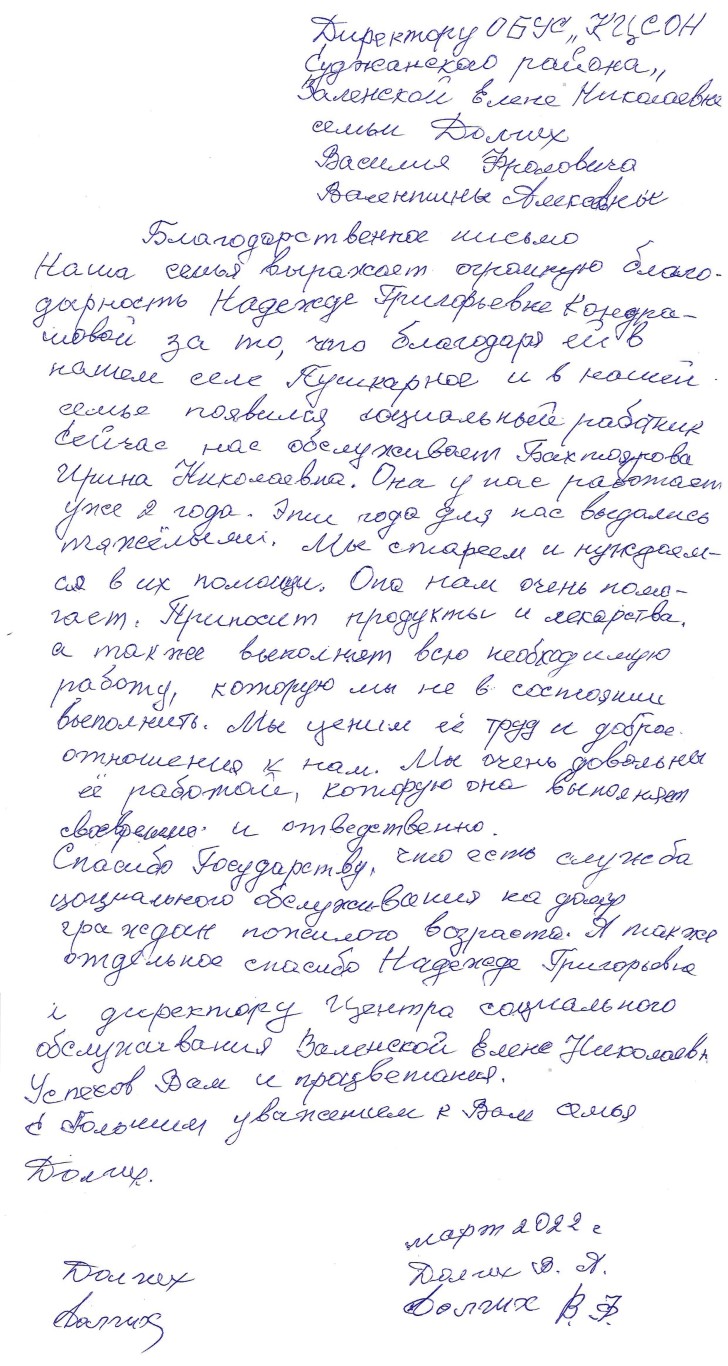 Директору ОБУСО „КЦСОН
Суджанского района„
Заленской Елене Николаевне
семьи Долгих
Василия Фроловича
Валентины
Благодарственное письмо
Наша семья выражает огромную благо-
дарность Надежде Григорьевне Кондра-
шовой за то, что благодаря ей в
нашем селе Пушкарное и в нашей
семье появился социальный работник
Сейчас нас обслуживает Бахтоярова
Ирина Николаевна. Она у нас работает
уже 2 года. Эти года для нас выдались
тяжёлыми. Мы стареем и нуждаем-
ся в их помощи. Она нам очень помо-
гает. Приносит продукты и лекарства.
а также выполняет всю необходимую
работу, которую мы не в состоянии
выполнить. Мы ценим её труд и доброе
отношения к нам. Мы очень довольны
её работой, которую она выполняет
и отведственно.
Спасибо Государству, что есть служба
цоциального обслуживания на дому
граждан пожилого возраста. А также
отдельное спасибо Надежде Григорьевне
и директору Центра социального
обслуживания Заленской Елене Николаевн
Успехов Вам и процветания.
С большим уважением к Вам семья
Долгих.
март 2022 г
Долгих Долгих В. А.
Долгих Долгих В. Ф.